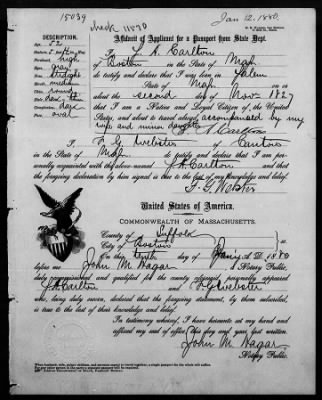 15039
Jan 12. 1880.
Affidavit of Applicant for a Passport from State Dept.
DESCRIPTION.
I, J. A. Carlton
of Boston in the State of Mass.
do testify and declare that I was born in Salem
State of Mass. on or
about the second day of Nov. 1827
that I am a Native and Loyal Citizen of the United
States, and about to travel abroad accompanied by my
wife and minor daughter
J. A. Carlton
high
gray
straight
medium
round
dark
oval
I, F. G. Webster of
State of Mass. do testify and declare that I am per-
sonally acquainted with the above-named J. A. Carlton
the foregoing declaration by him signed is true to the best of my knowledge and belief.
F. G. Webster
United States of America.
COMMONWEALTH OF MASSACHUSETTS.
County of Suffolk
City of Boston ss
On this tenth day of Jany. A. D. 1880
before me John M. Hagar, a Notary Public,
duly commissioned and qualified for the county aforesaid, personally appeared
J. A. Carlton and F. G. Webster
who, being duly sworn, declared that the foregoing statement, by them subscribed,
is true to the best of their knowledge and belief.
In testimony whereof, I have hereunto set my hand and
affixed my seal of office this day and year last written.
John M. Hagar
Notary Public.